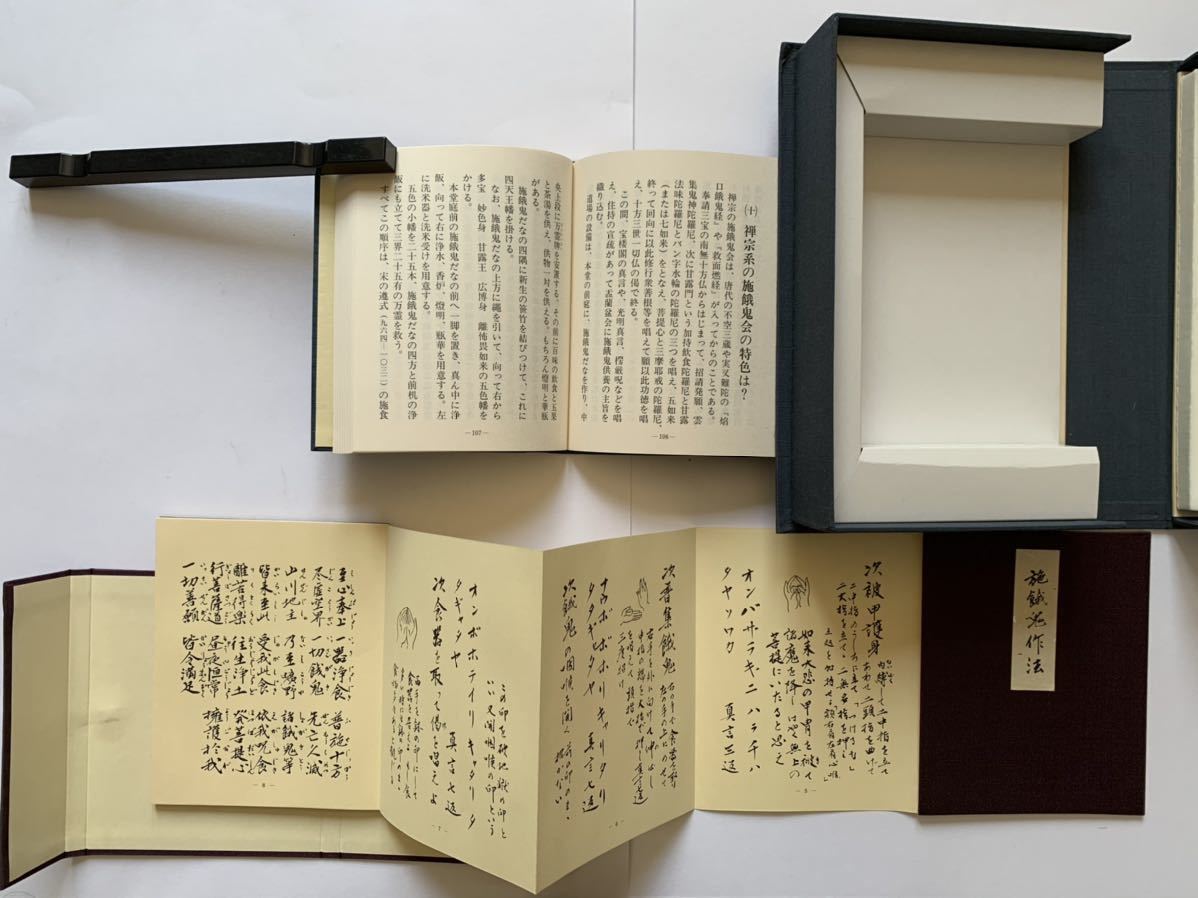 ㈩ 禅宗系の施餓鬼会の特色は?
禅宗の施餓鬼会は、唐代の不空三蔵や実叉難陀の『焔
口餓鬼経』や『救面燃経』が入ってからのことである。
奉請三宝の南無十方仏からはじまって、招請発願、雲
集鬼神陀羅尼、次に甘露門という加持飲食陀羅尼と甘露
法味陀羅尼とバン字水輪の陀羅尼の三つを唱え、五如来
(または七如来)をとなえ、菩提心と三摩耶戒の陀羅尼、
終って回向に以此修行衆善根等を唱えて願以此功徳を唱
え、十方三世一切仏の偈で終る。
この間、宝楼閣の真言や、光明真言、楞厳呪などを唱
え、住持の宣疏があって盂蘭盆会に施餓鬼供養の主旨を
織り込む。
道場の設備は、本堂の前庭に、施餓鬼だなを作り、中
—106—
央上段に万霊牌を安置する。その前に百味の飲食と五果
と茶湯を供え、供物一対を供える。もちろん燈明と華瓶
がある。
施餓鬼だなの四隅に新生の笹竹を結びつけて、これに
四天王幡を掛ける。
なお、施餓鬼だなの上方に縄を引いて、向って右から
多宝 妙色身 甘露王 広博身 離怖畏如来の五色幡を
かける。
本堂庭前の施餓鬼だなの前へ一脚を置き、真ん中に浄
飯、向って右に浄水、香炉、燈明、瓶華を用意する。左
に洗米器と洗米受けを用意する。
五色の小幡を二十五本、施餓鬼だなの四方と前机の浄
飯にも立てて三界二十五有の万霊を救う。
すべてこの順序は、宋の遵式(九六四—一〇三二)の施食
—107—
施餓鬼作法
次被甲護身
内縛して二中指を立て
あわせ二頭指を曲げて
二中指のうしろに立てつけず
二大指を立て二無名指を押す
如来大悲の甲冑を被て
諸魔を降し
無上の
菩提にいたると思え
オンバサラギニハラチハ
タヤソワカ 真言三返
—5—
次普集餓鬼
右の手で食器を取り
左の手の上にのせて
—6—
次餓鬼の咽喉を開く
この印を破地獄の印と
いい又開咽喉の印という
オンボホテイリキャリタ
タギャタヤ 真言七返
次食器を取って偈を唱えよ
—7—
至心奉上 一器浄食 普施十方
尽虚空界 一切餓鬼 先亡久滅
山川地主 乃至曠野 諸餓鬼等
皆来至此 受我此食 依我呪食
離苦得楽 往生浄土 発菩提心
行菩薩道 昼夜恒常 擁護於我
一切善願 皆令満足
—8—